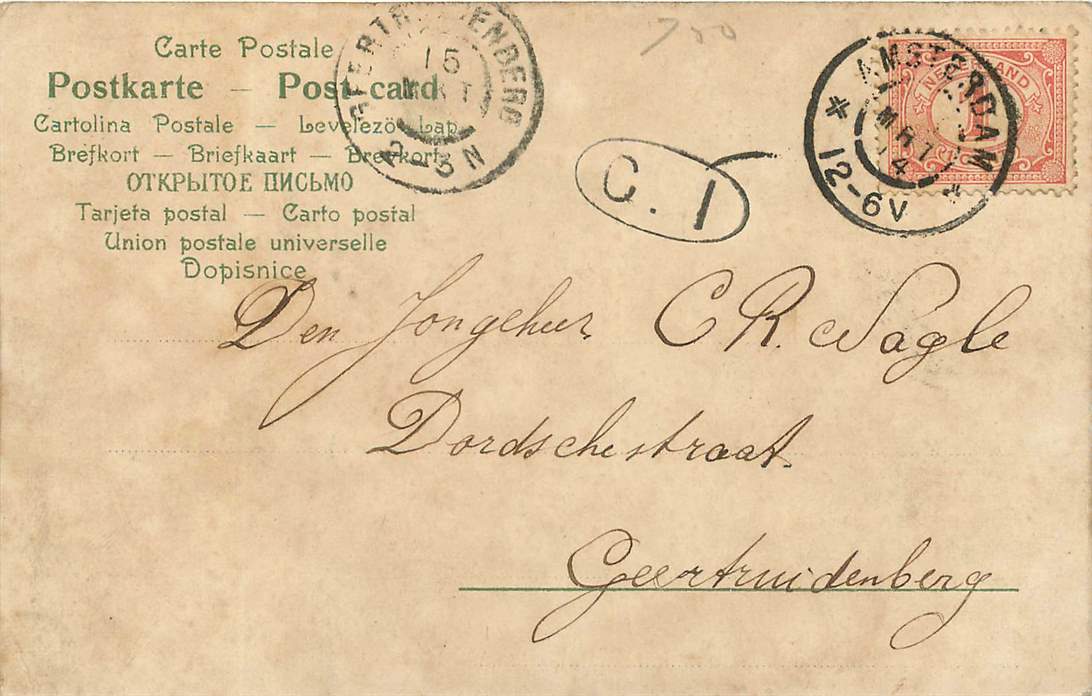 Carte Postale
Postkarte — Post-card
Cartolina Postale — Levelező-Lap
Brefkort — Briefkaart — Brevkort
ОТКРЫТОЕ ПИСЬМО
Tarjeta postal — Carto postal
Union postale universelle
Dopisnice
GEERTRUIDENBERG
15
MRT
2-3N
700
C. 1
NEDERLAND
1
AMSTERDAM
12-6V
Den Jongeheer C R. Nagle
Dordschestraat.
Geertruidenberg